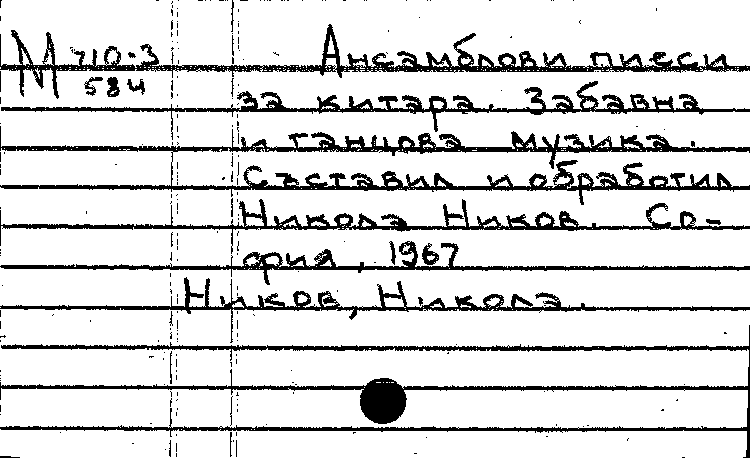 М 710-3
584
Ансамблови пиеси
за китара. Забавна
и танцова музика.
Съставил и обработил
Никола Ников. Со-
фия, 1967
Ников, Никола.